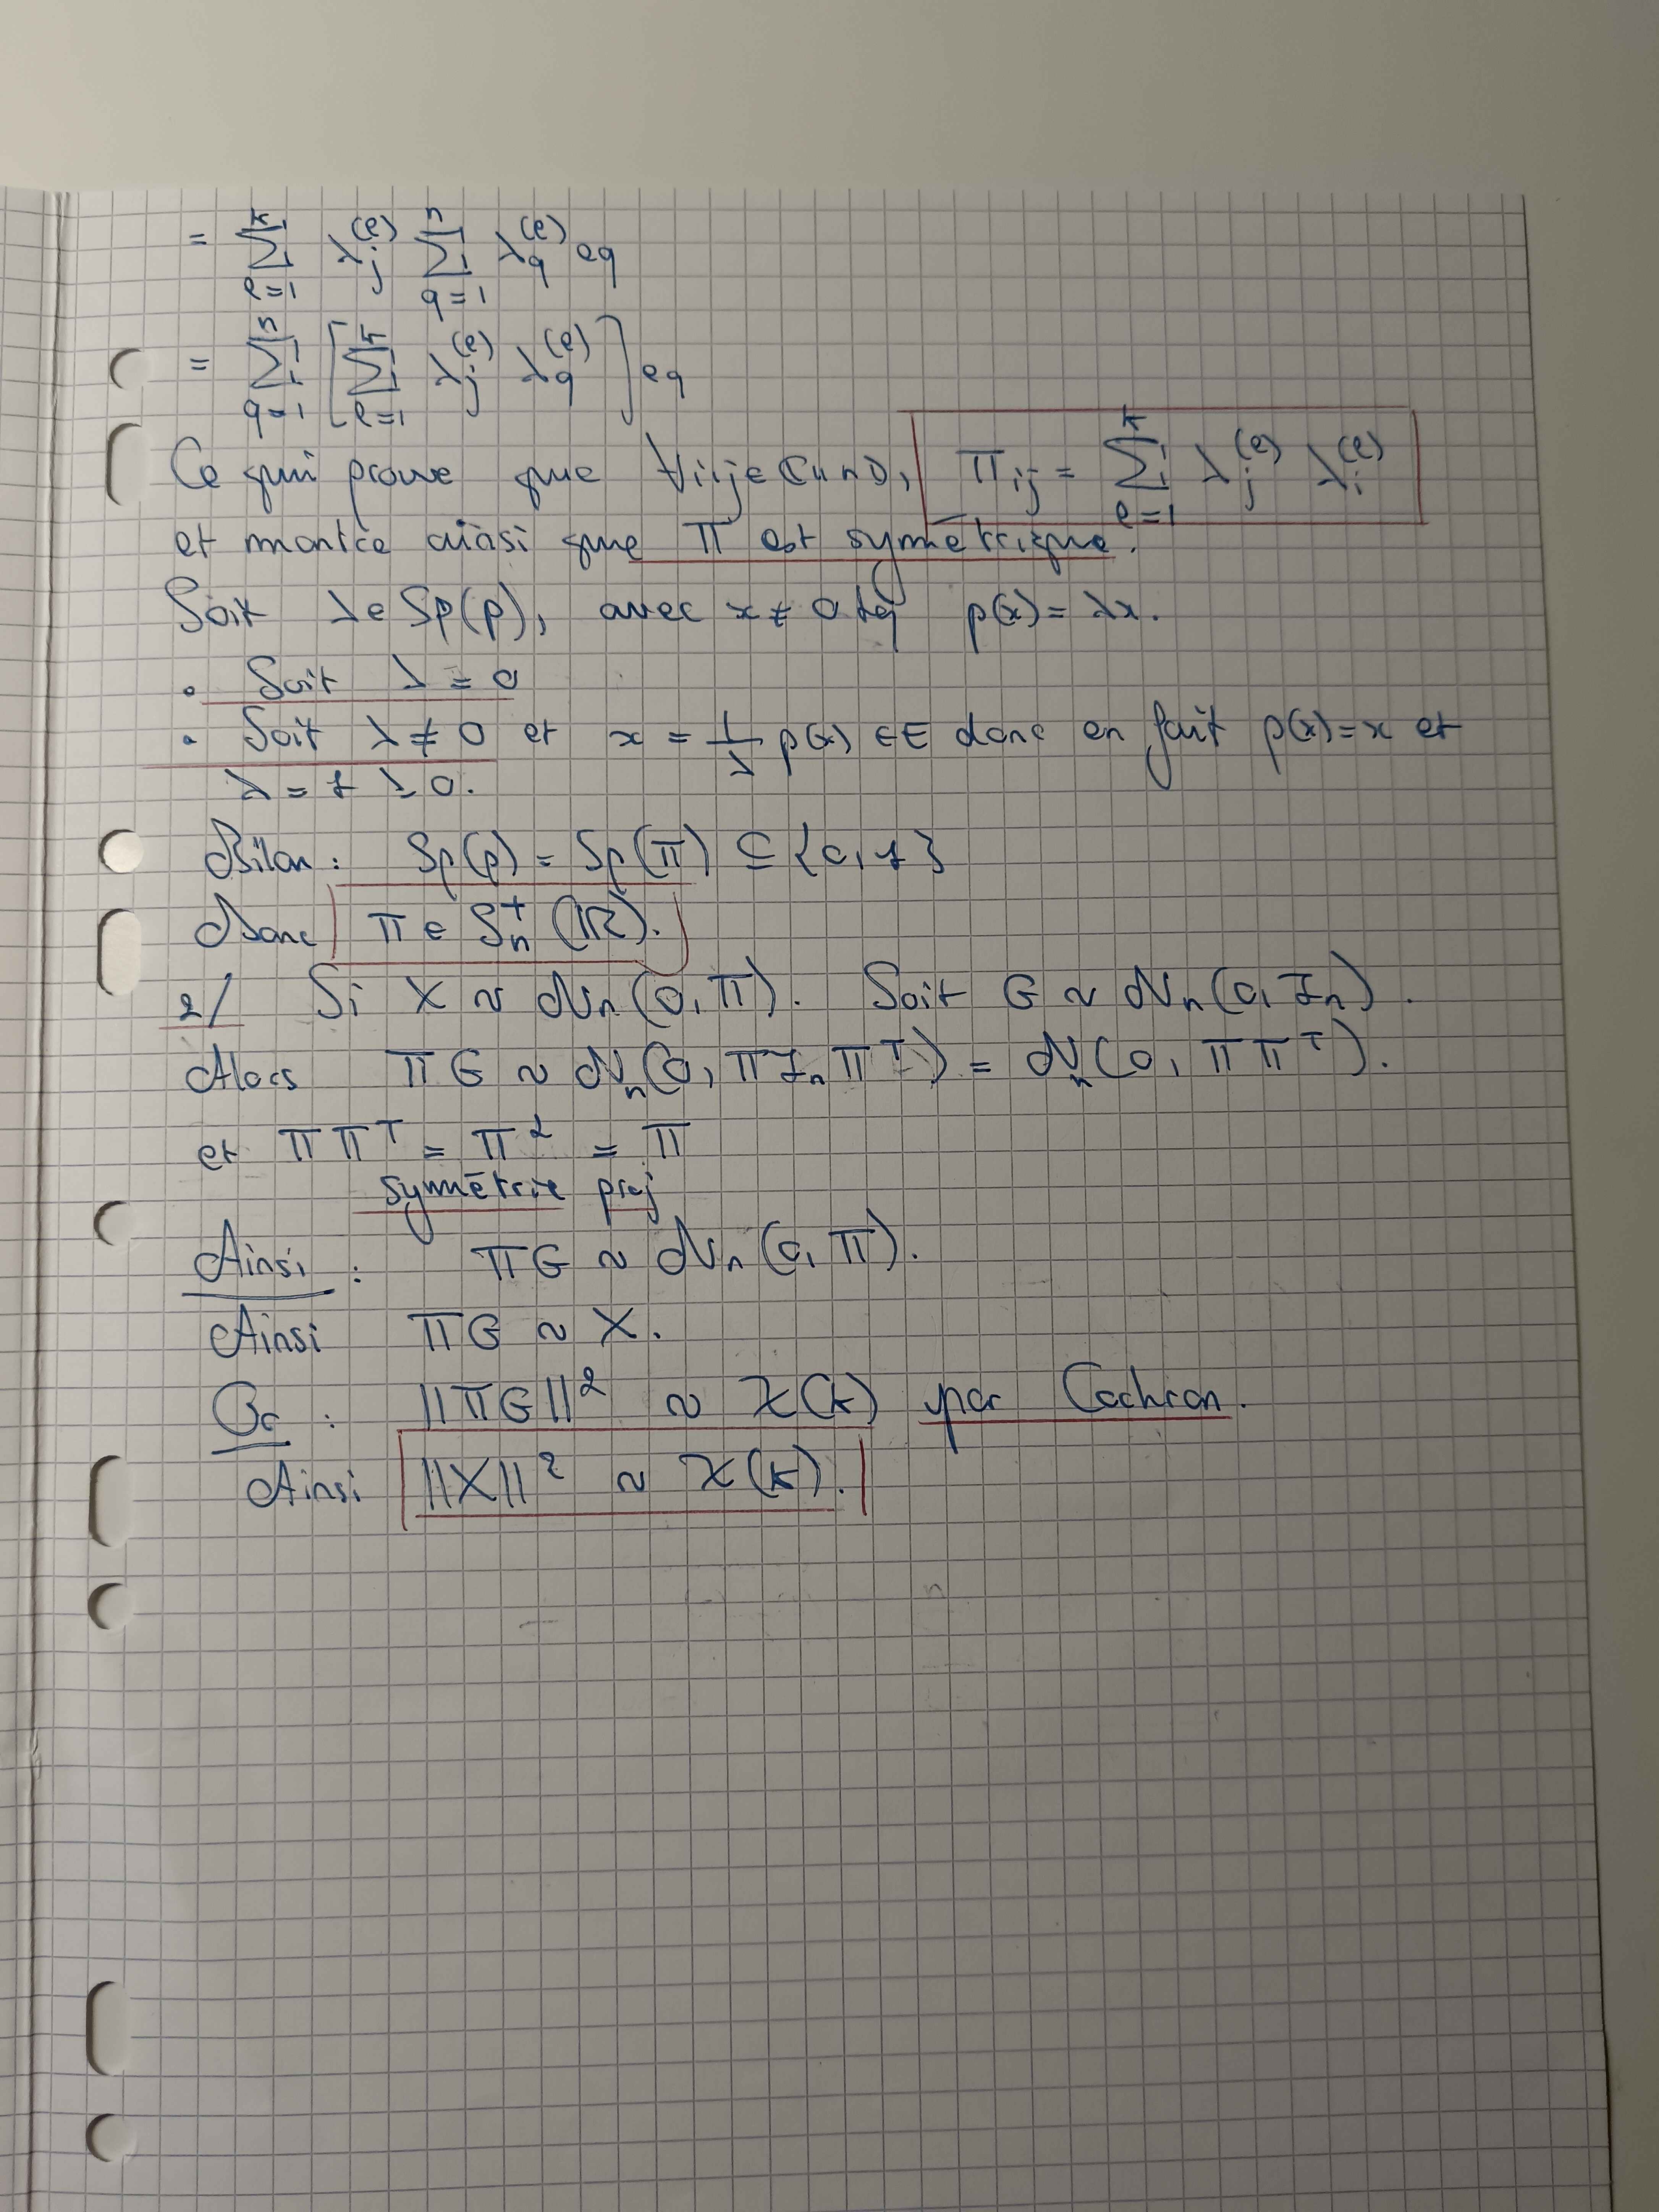 = \sum_{l=1}^{k} λ_j^{(l)} \sum_{q=1}^{n} λ_q^{(l)} e_q
= \sum_{q=1}^{n} [ \sum_{l=1}^{k} λ_j^{(l)} λ_q^{(l)} ] e_q
Ce qui prouve que ∀i,j∈⟦1,n⟧, Π_{ij} = \sum_{l=1}^{k} λ_j^{(l)} λ_i^{(l)}
et montre ainsi que Π est symétrique.
Soit λ∈Sp(p), avec x≠0 tq p(x)=λx.
• Soit λ = 0
• Soit λ≠0 et x = \frac{1}{λ} p(x) ∈E donc en fait p(x)=x et
λ = 1 ≥ 0.
Bilan : Sp(p) = Sp(Π) ⊆ {0,1}
Donc Π ∈ S_n^+(ℝ).
2/ Si X ~ N_n(0,Π). Soit G ~ N_n(0,I_n).
Alors ΠG ~ N_n(0, Π I_n Π^T) = N_n(0, ΠΠ^T).
et ΠΠ^T = Π^2 = Π
symétrie proj
Ainsi : ΠG ~ N_n(0,Π).
Ainsi ΠG ~ X.
Or : ||ΠG||^2 ~ χ(k) par Cochran.
Ainsi ||X||^2 ~ χ(k).